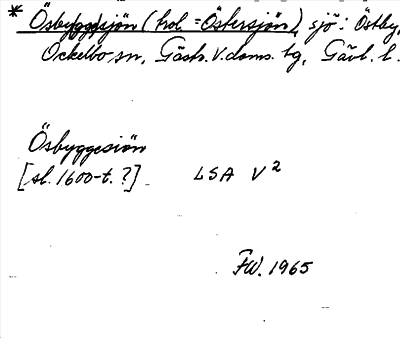 * Ösbyggesjön (trol. = Östersjön), sjö: Östby,
Ockelbo sn, Gästr. V. doms. tg, Gävl. l.
Ösbyggesiön
[sl. 1600-t. ?] LSA V²
FW. 1965